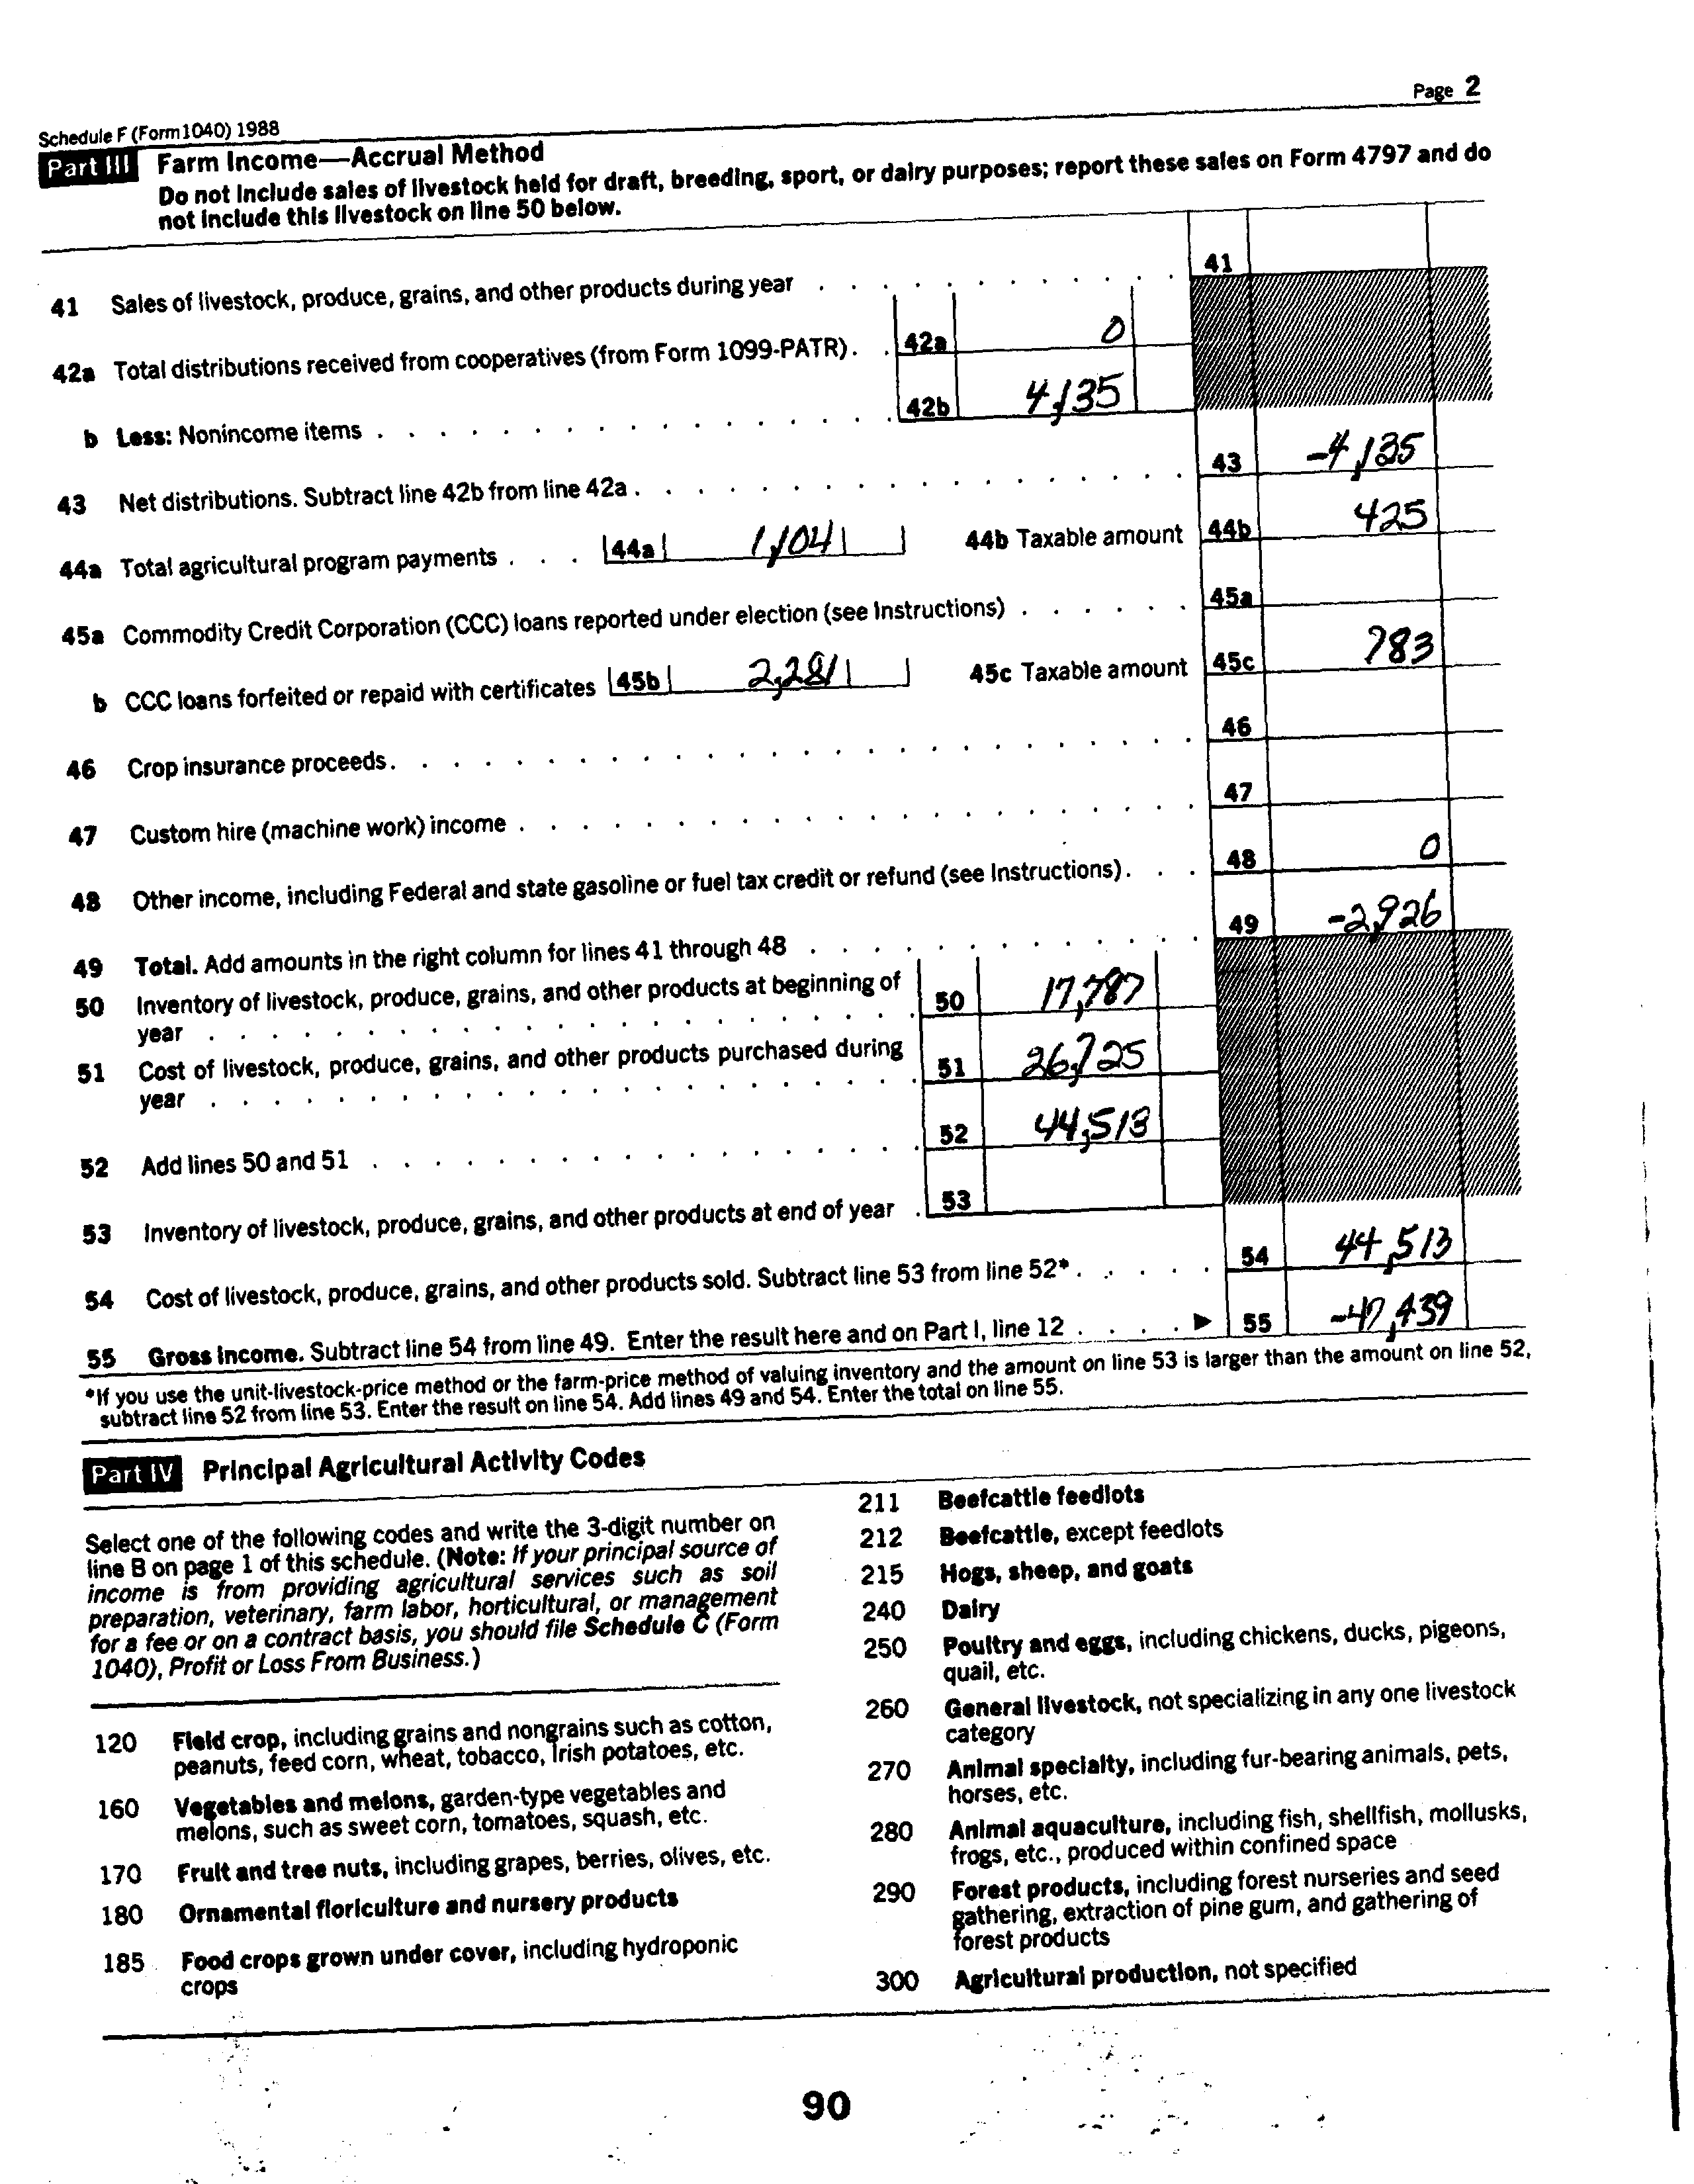 Page 2
Schedule F (Form 1040) 1988
Part III Farm Income—Accrual Method
Do not include sales of livestock held for draft, breeding, sport, or dairy purposes; report these sales on Form 4797 and do
not include this livestock on line 50 below.
41 Sales of livestock, produce, grains, and other products during year . . . . . . . . . . . . 41
42a Total distributions received from cooperatives (from Form 1099-PATR) . . 42a 0
b Less: Nonincome items . . . . . . . . . . . . . . . . . 42b 4,135
43 Net distributions. Subtract line 42b from line 42a . . . . . . . . . . . . . . . . . . 43 -4,135
44a Total agricultural program payments . . . 44a 1,104 44b Taxable amount 44b 425
45a Commodity Credit Corporation (CCC) loans reported under election (see Instructions) . . . . . . 45a
b CCC loans forfeited or repaid with certificates 45b 2,281 45c Taxable amount 45c 783
46 Crop insurance proceeds . . . . . . . . . . . . . . . . . . . . . . . . . 46
47 Custom hire (machine work) income . . . . . . . . . . . . . . . . . . . . . 47
48 Other income, including Federal and state gasoline or fuel tax credit or refund (see Instructions) . . . 48 0
49 Total. Add amounts in the right column for lines 41 through 48 . . . . . . . . . . . . . 49 -2,926
50 Inventory of livestock, produce, grains, and other products at beginning of
year . . . . . . . . . . . . . . . . . . . . . . 50 17,787
51 Cost of livestock, produce, grains, and other products purchased during
year . . . . . . . . . . . . . . . . . . . . . . 51 26,725
52 Add lines 50 and 51 . . . . . . . . . . . . . . . . . 52 44,513
53 Inventory of livestock, produce, grains, and other products at end of year . 53
54 Cost of livestock, produce, grains, and other products sold. Subtract line 53 from line 52* . . . . . 54 44,513
55 Gross income. Subtract line 54 from line 49. Enter the result here and on Part I, line 12 . . . . ▶ 55 -47,439
*If you use the unit-livestock-price method or the farm-price method of valuing inventory and the amount on line 53 is larger than the amount on line 52,
subtract line 52 from line 53. Enter the result on line 54. Add lines 49 and 54. Enter the total on line 55.
Part IV Principal Agricultural Activity Codes
Select one of the following codes and write the 3-digit number on
line B on page 1 of this schedule. (Note: If your principal source of
income is from providing agricultural services such as soil
preparation, veterinary, farm labor, horticultural, or management
for a fee or on a contract basis, you should file Schedule C (Form
1040), Profit or Loss From Business.)
120 Field crop, including grains and nongrains such as cotton,
peanuts, feed corn, wheat, tobacco, Irish potatoes, etc.
160 Vegetables and melons, garden-type vegetables and
melons, such as sweet corn, tomatoes, squash, etc.
170 Fruit and tree nuts, including grapes, berries, olives, etc.
180 Ornamental floriculture and nursery products
185 Food crops grown under cover, including hydroponic
crops
211 Beefcattle feedlots
212 Beefcattle, except feedlots
215 Hogs, sheep, and goats
240 Dairy
250 Poultry and eggs, including chickens, ducks, pigeons,
quail, etc.
260 General livestock, not specializing in any one livestock
category
270 Animal specialty, including fur-bearing animals, pets,
horses, etc.
280 Animal aquaculture, including fish, shellfish, mollusks,
frogs, etc., produced within confined space
290 Forest products, including forest nurseries and seed
gathering, extraction of pine gum, and gathering of
forest products
300 Agricultural production, not specified
90